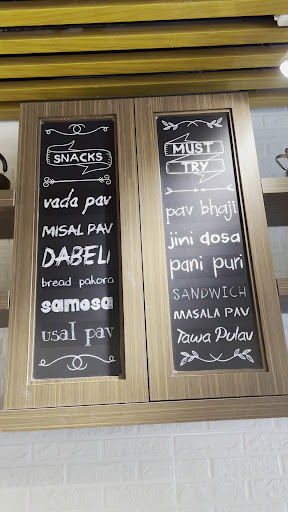 SNACKS
vada pav
MISAL PAV
DABELI
bread pakora
samosa
usal pav
MUST
TRY
pav bhaji
jini dosa
pani puri
SANDWICH
MASALA PAV
Tawa Pulav